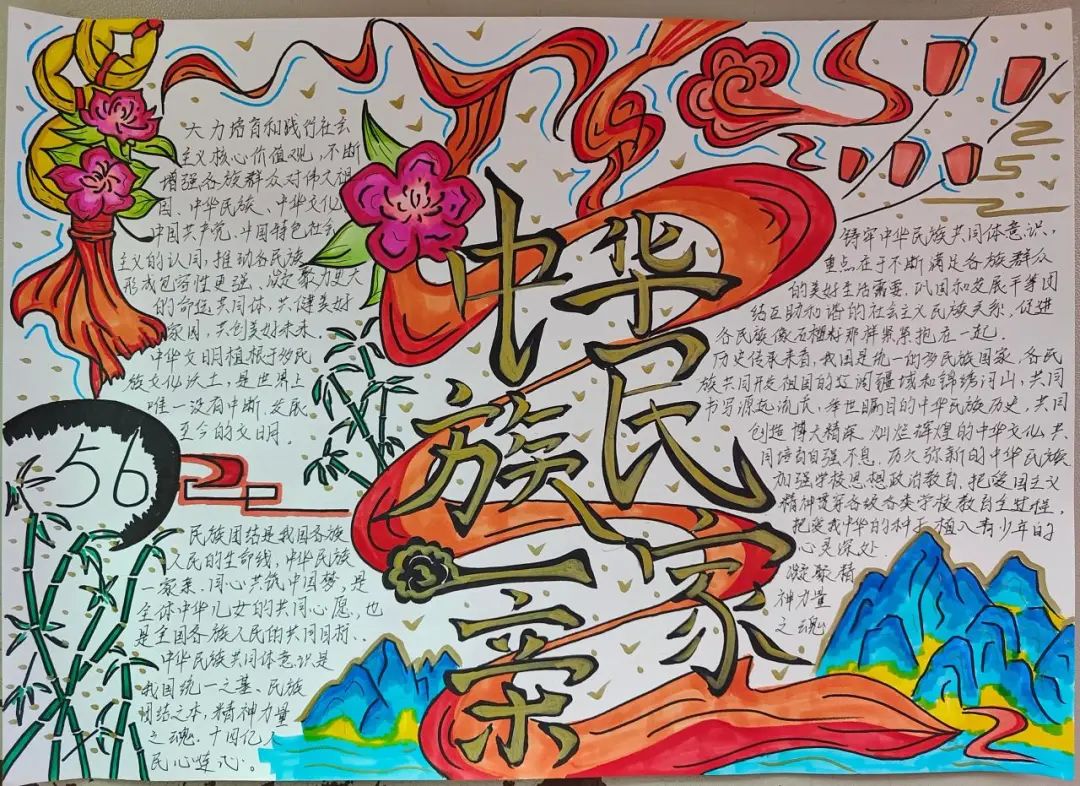 大力培育和践行社会
主义核心价值观,不断
增强各族群众对伟大祖
国、中华民族、中华文化、
中国共产党、中国特色社会
主义的认同,推动各民族
形成包容性更强、凝聚力更大
的命运共同体,共健美好
家园,共创美好未来。
中华文明植根于多民
族文化沃土,是世界上
唯一没有中断、发展
至今的文明。
56
民族团结是我国各族
人民的生命线,中华民族
一家亲、同心共筑中国梦,是
全体中华儿女的共同心愿,也
是全国各族人民的共同目标。
中华民族共同体意识是
我国统一之基、民族
团结之本,精神力量
之魂。十四亿人
民心连心。
中华
民族
一家亲
铸牢中华民族共同体意识,
重点在于不断满足各族群众
的美好生活需要,巩固和发展平等团
结互助和谐的社会主义民族关系,促进
各民族像石榴籽那样紧紧抱在一起。
历史传承来看,我国是统一的多民族国家,各民
族共同开发祖国的辽阔疆域和锦绣河山,共同
书写源远流长、举世瞩目的中华民族历史,共同
创造博大精深、灿烂辉煌的中华文化,共
同培育自强不息、历久弥新的中华民族
加强学校思想政治教育,把爱国主义
精神贯穿各级各类学校教育全过程,
把爱我中华的种子植入青少年的
心灵深处
凝聚精
神力量
之魂